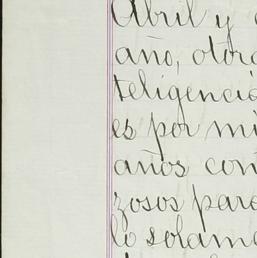 Abril y
año, otor
teligencia
es por mi
años con
zosos para
lo solame